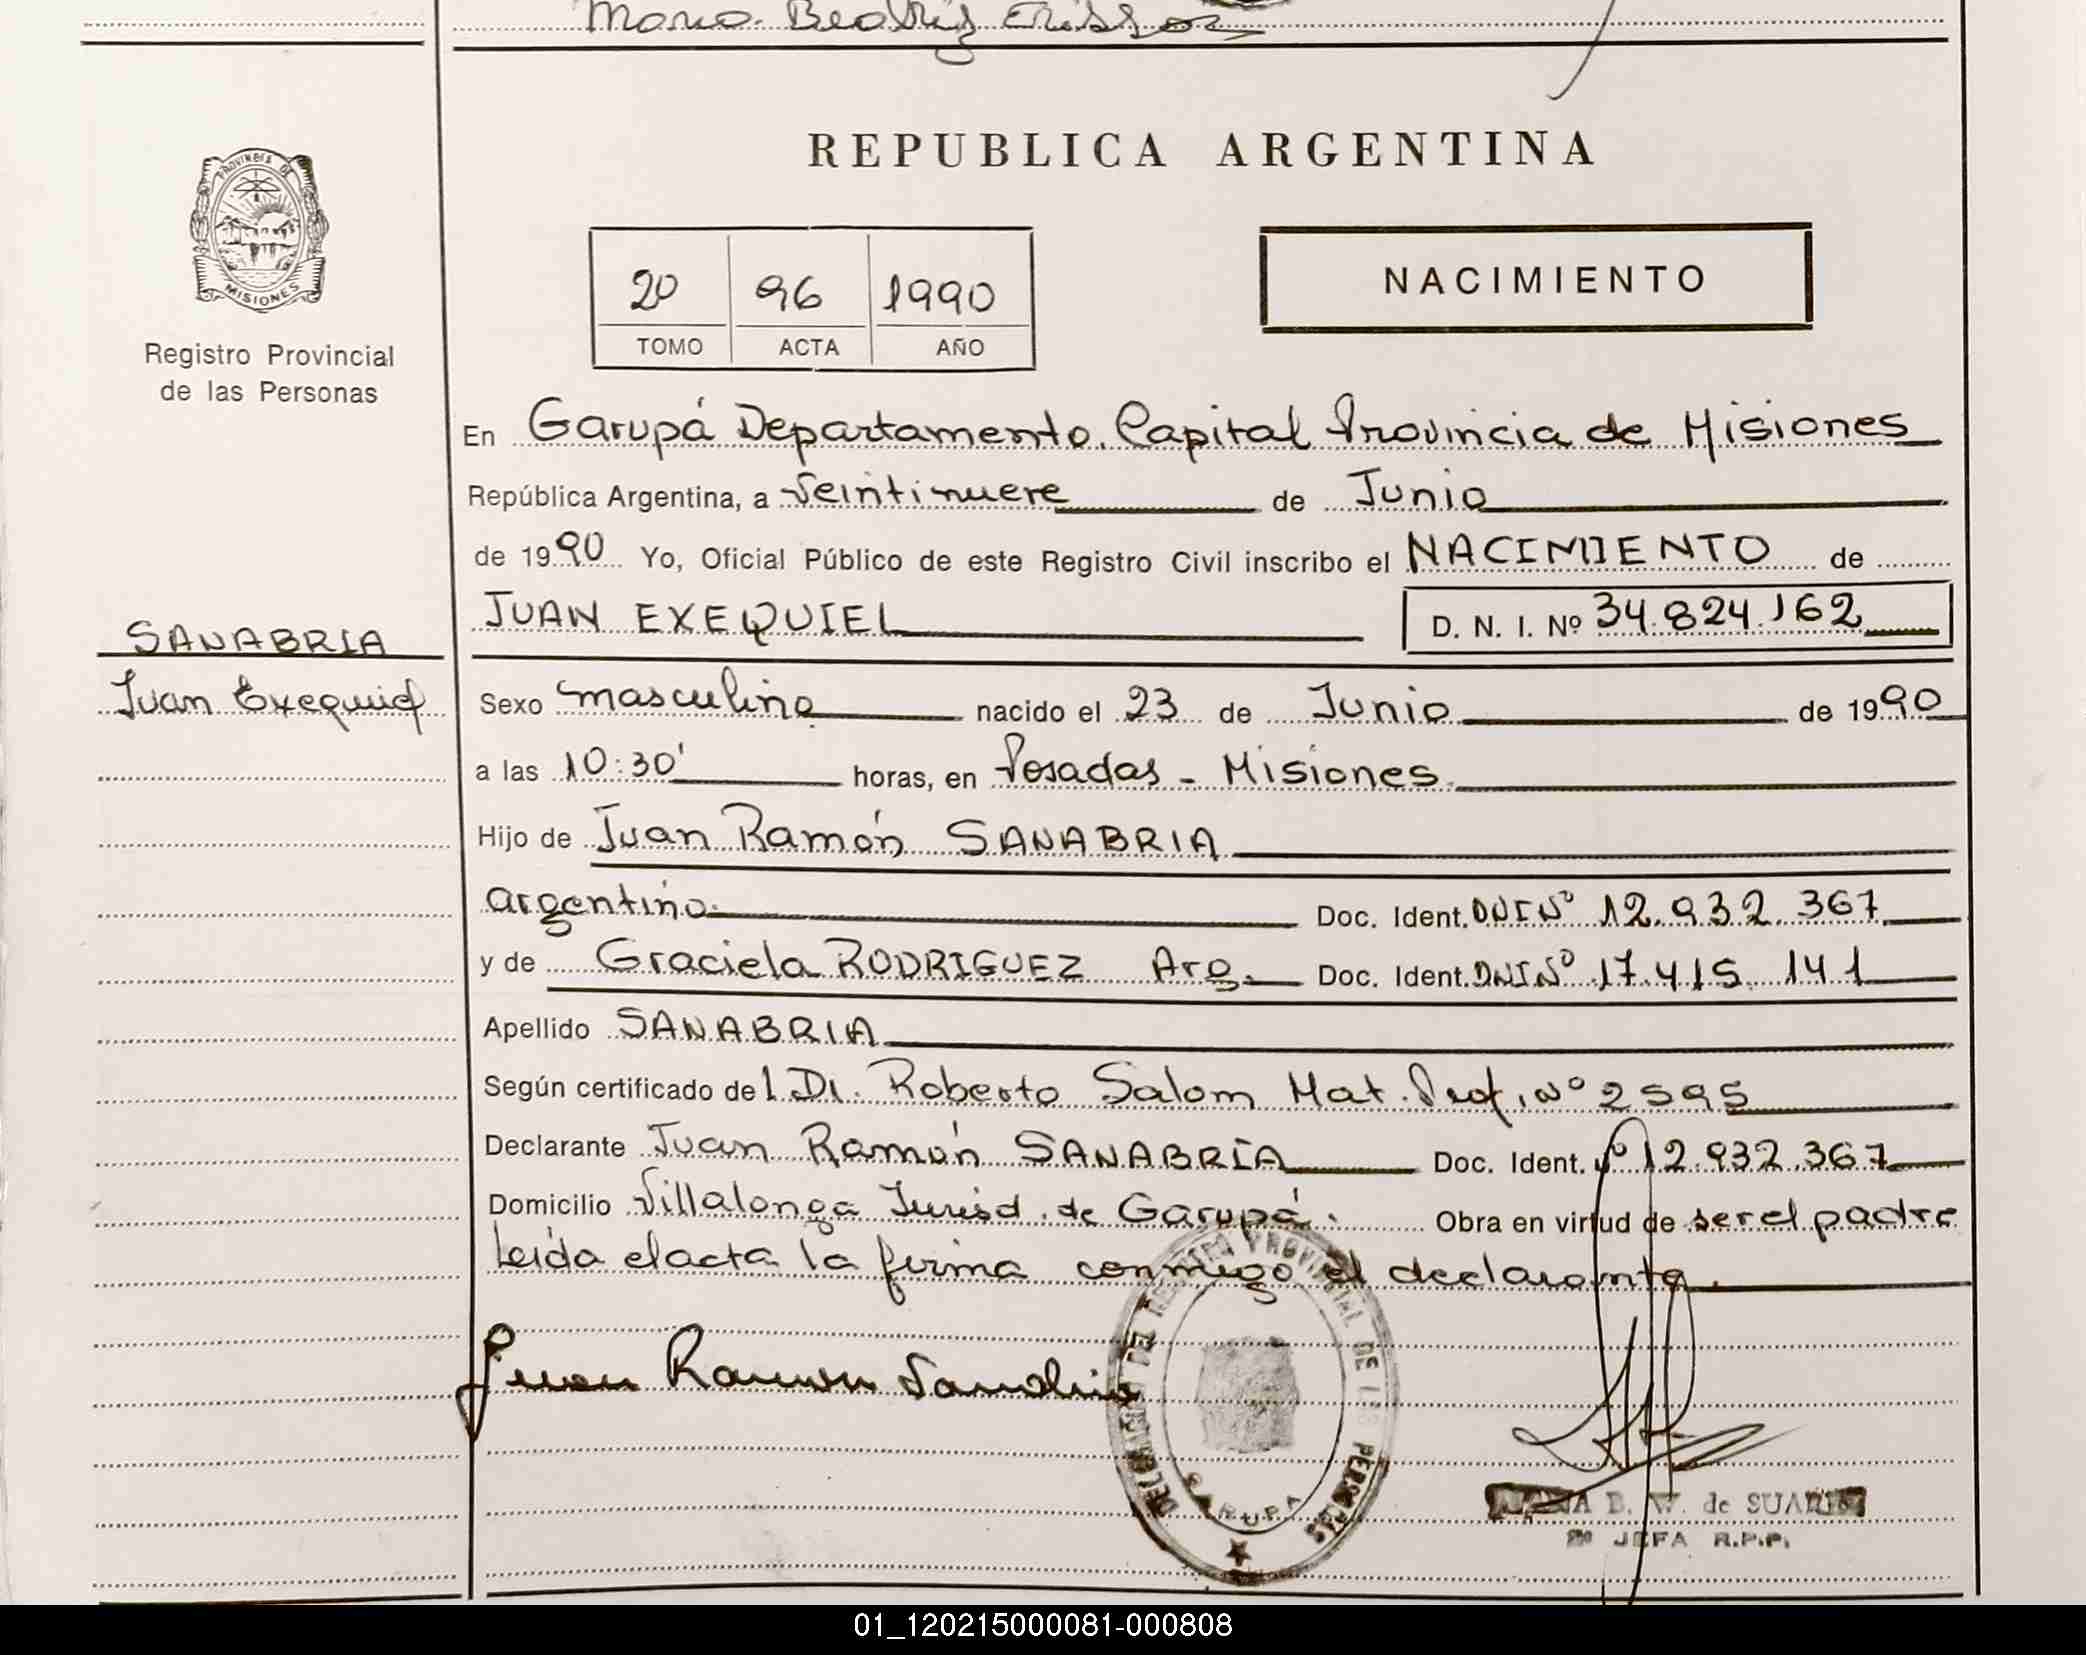 Maria Beatriz
REPUBLICA ARGENTINA
PROVINCIA DE
MISIONES
Registro Provincial
de las Personas
20 96 1990
TOMO ACTA AÑO
NACIMIENTO
En Garupá Departamento Capital Provincia de Misiones
República Argentina, a Veintinueve de Junio
de 1990 Yo, Oficial Público de este Registro Civil inscribo el NACIMIENTO de
JUAN EXEQUIEL D. N. I. Nº 34.824.162
SANABRIA
Juan Exequiel
Sexo masculino nacido el 23 de Junio de 1990
a las 10:30' horas, en Posadas - Misiones.
Hijo de Juan Ramón SANABRIA
argentino. Doc. Ident. DNI Nº 12.932.367
y de Graciela RODRIGUEZ Arg. Doc. Ident. DNI Nº 17.415.141
Apellido SANABRIA
Según certificado del Dr. Roberto Salom Mat. Prof. Nº 2595
Declarante Juan Ramón SANABRIA Doc. Ident. Nº 12.932.367
Domicilio Villalonga Jurisd. de Garupá. Obra en virtud de ser el padre
Leída el acta la firma conmigo el declarante.
Juan Ramon Sanabria
DELEGACION DEL REGISTRO PROVINCIAL DE LAS PERSONAS
GARUPA
B. W. de SUAREZ
JEFA R.P.P.
01_120215000081-000808